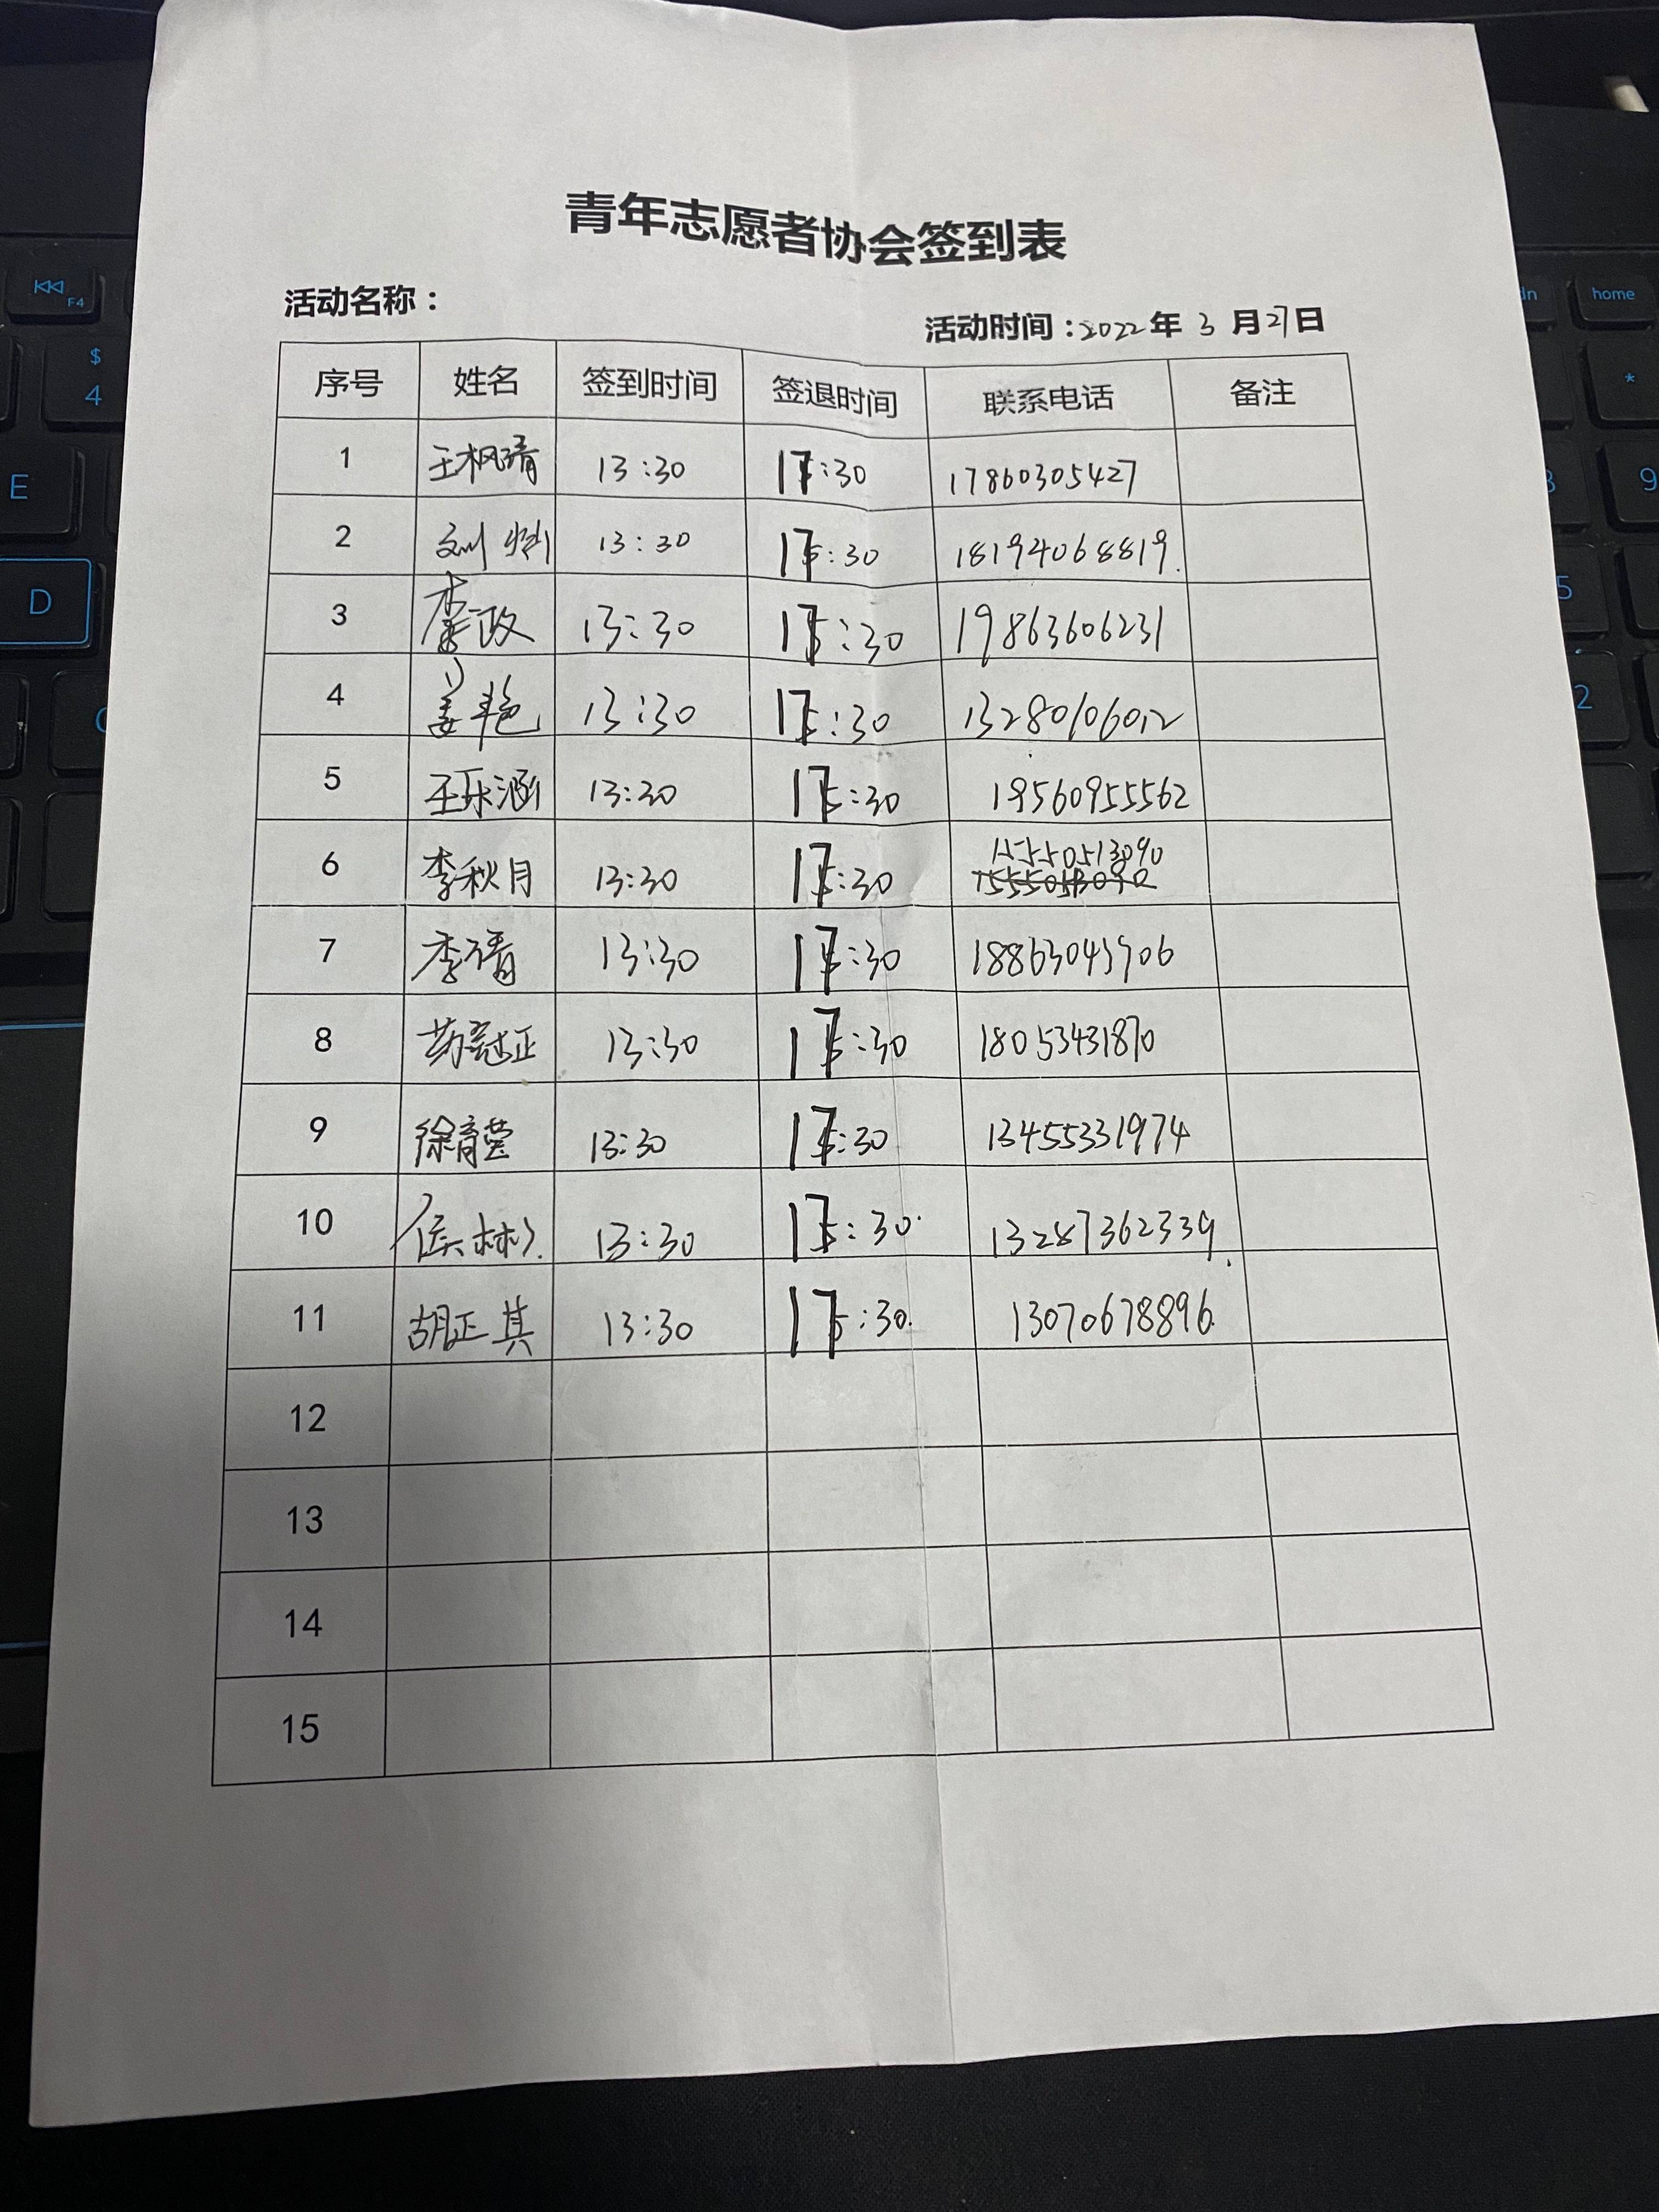 青年志愿者协会签到表
活动名称：
活动时间：2022年 3 月27日
序号 姓名 签到时间 签退时间 联系电话 备注
1 王枫清 13:30 17:30 17860305427
2 刘 13:30 17:30 18194068819.
3 李政 13:30 17:30 19863606231
4 姜艳 13:30 17:30 13280106012
5 王乐涵 13:30 17:30 19560955562
6 李秋月 13:30 17:30 15550513090
15550513090
7 李倩 13:30 17:30 18863043906
8 冠正 13:30 17:30 18053431870
9 徐育莹 13:30 17:30 13455331974
10 侯彬 13:30 17:30 13287362339.
11 胡正其 13:30 17:30. 13070678896.
12
13
14
15
F4
$
4
E
D
home
*
9
5
2